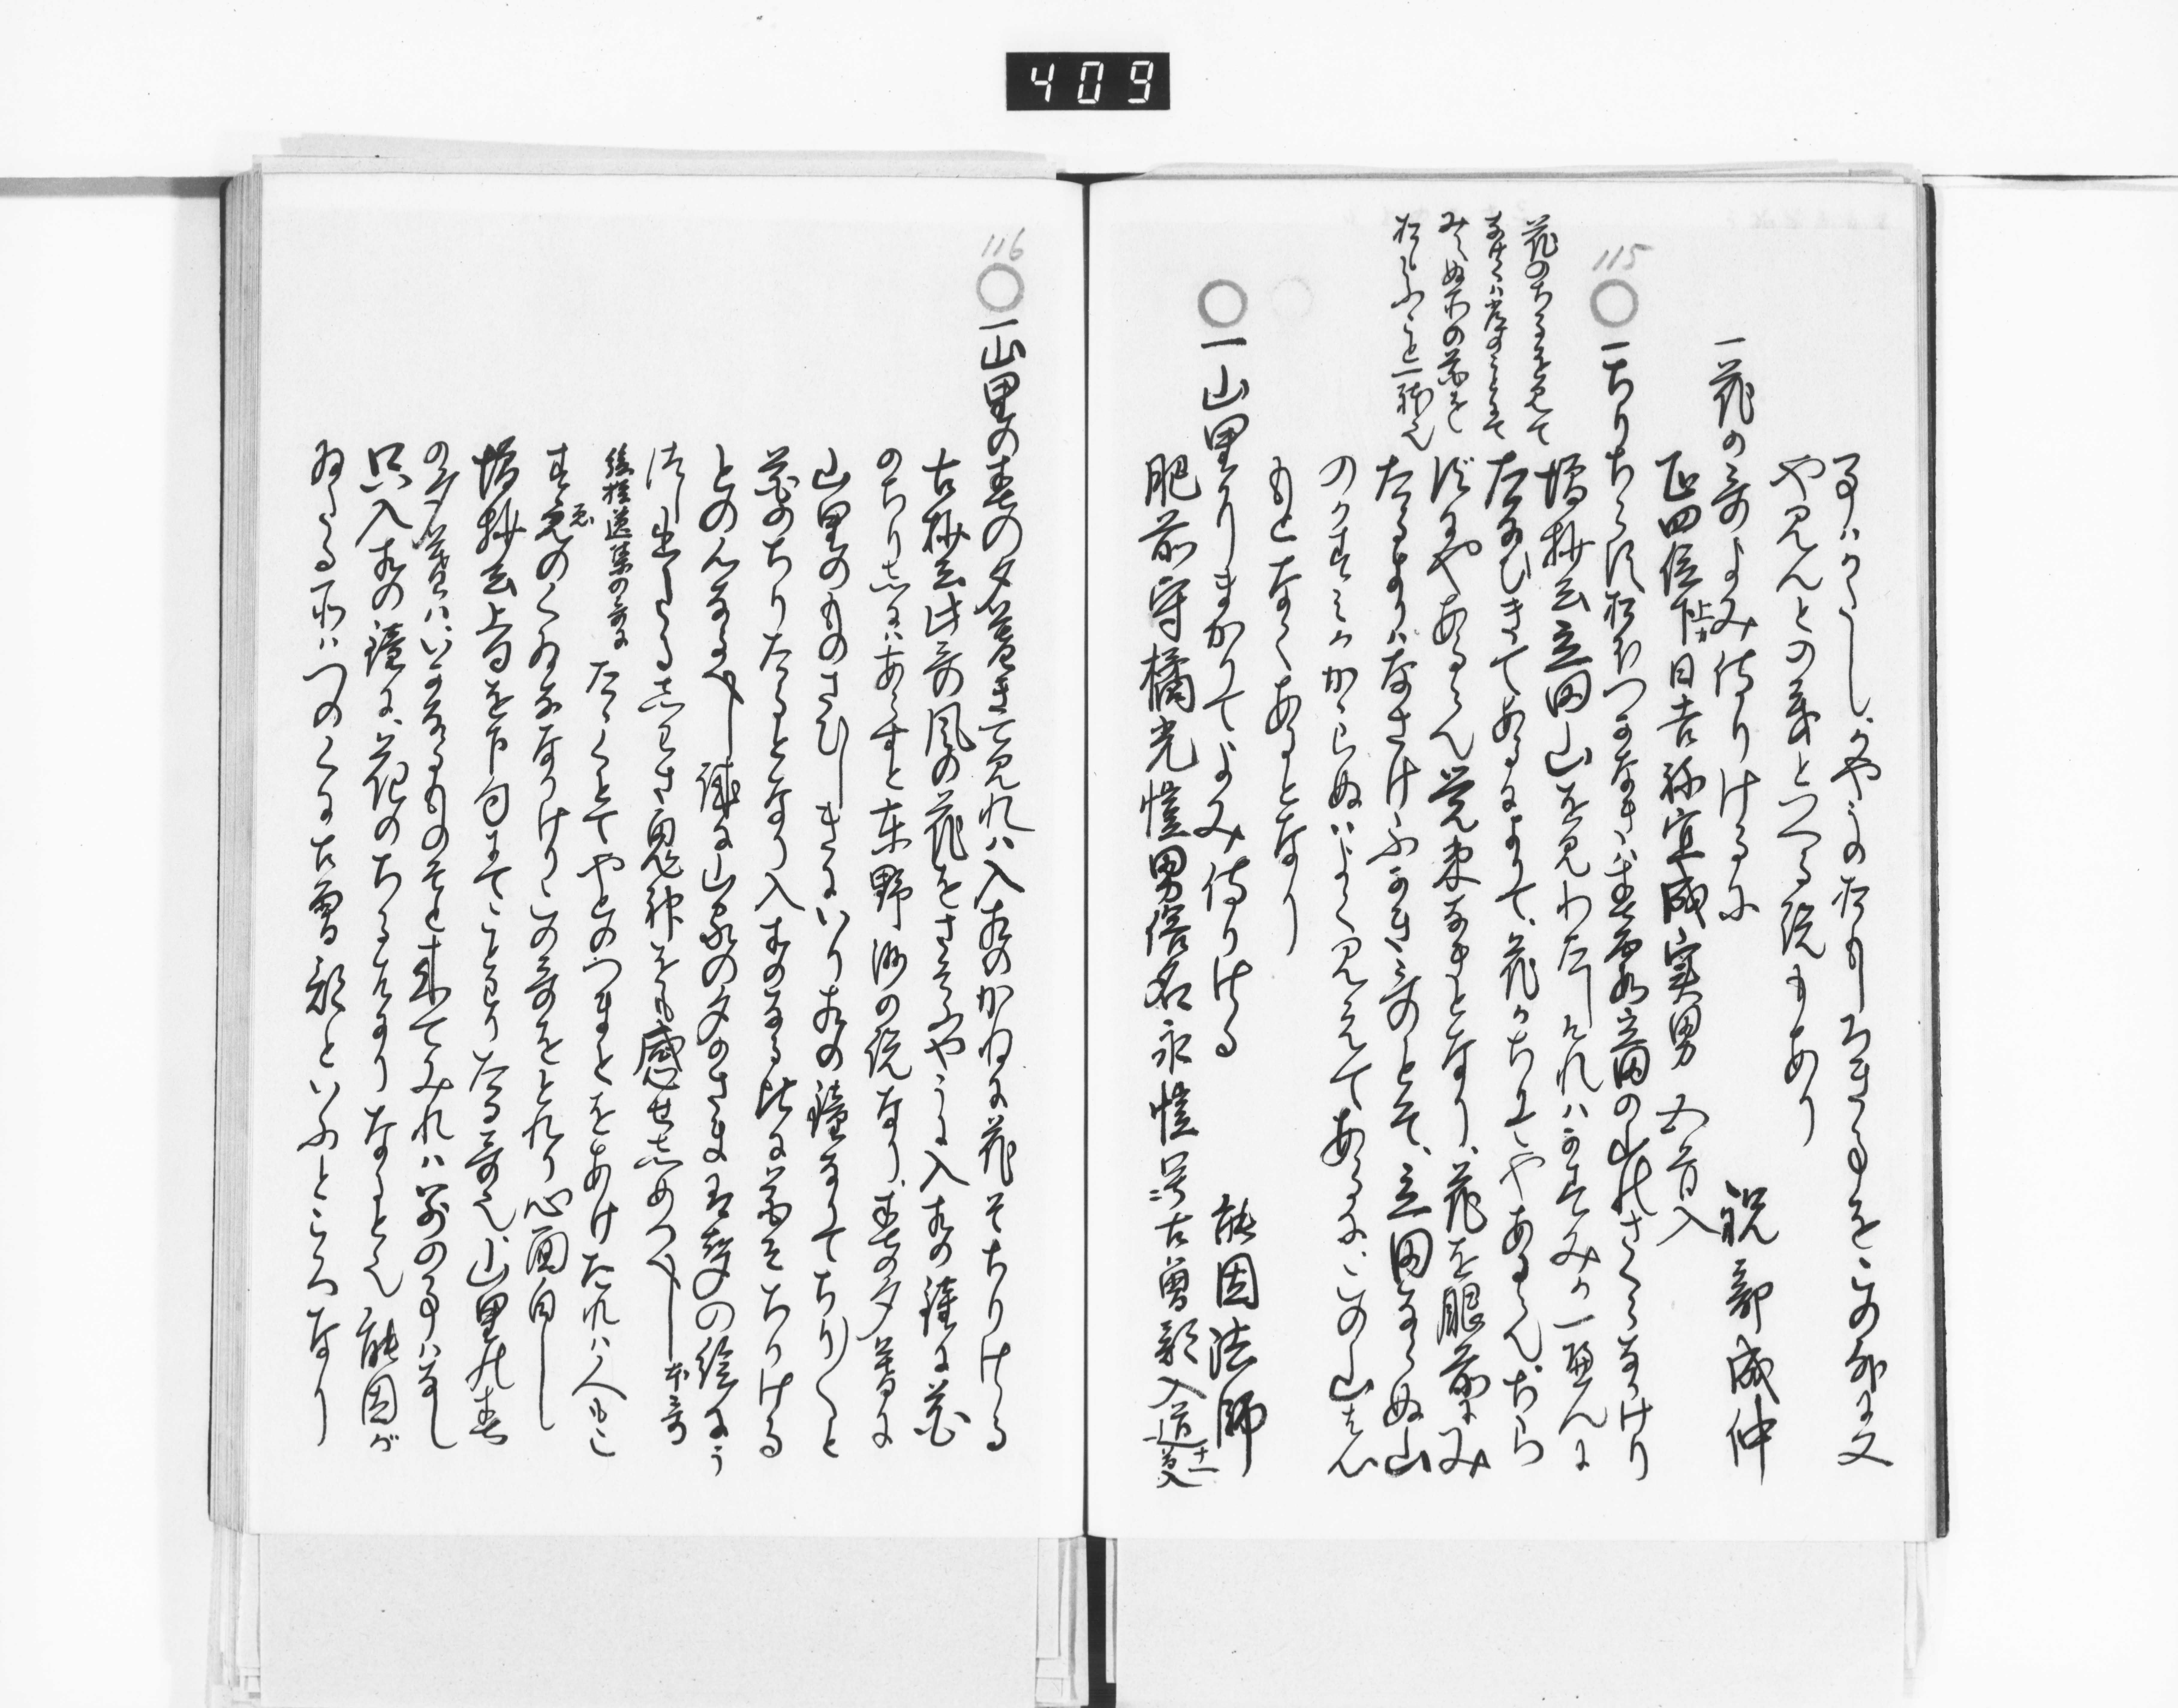 409
や見んとの義といへる説もあり
一花の哥よみ侍りけるに 祝部成仲
正四位下上カ日吉祢宜成実男 五首入
115
一ちりちらすおほつかなきは春霞立田の山のさくらなりけり
増抄云立田山を見わたしたれはかすみか一面に
たなひきてあるによりて、花かちりてやあるらんちら
すやあるらん覚束なきとなり、花を眼前にみ
たるよりはなさけふかき哥のとそ、立田ならぬ山
のかすみかからぬはよく見えてあるに、この山はしん
もとなくあるとなり
花のちるを見て
一山里にまかりてよみ侍りける 能因法師
肥前守橘元愷男俗名永愷号古曽部入道 十一首入
116
一山里の春の夕暮きて見れは入相のかねに花そちりける
古抄云此哥風の花をさそふやうに入相の鐘に花
のちりしにはあらすと東野州の説なり、春の夕暮に
山里のものさひしきにいり相の鐘なりてちり〱と
花のちりたるとなり入相のなる比に花そちりける
との心なるへし誠に山家の夕のさま無声の絵にう
つし出したる志わさ鬼神をも感せしめつへし 本哥
後拾遺集の哥に たゝくとてやとのつまとをあけたれは人もこ
すゑのくゐななりけりこの哥をとれり心面白し
増抄云上句を下句にてことわりたる哥也、山里の春
の夕暮はいかなるものそと来てみれは別の事はなし
只入相の鐘に、花のちるはかりなりと也 能因が
ゐたる所はつのくに古曽部といふところなり